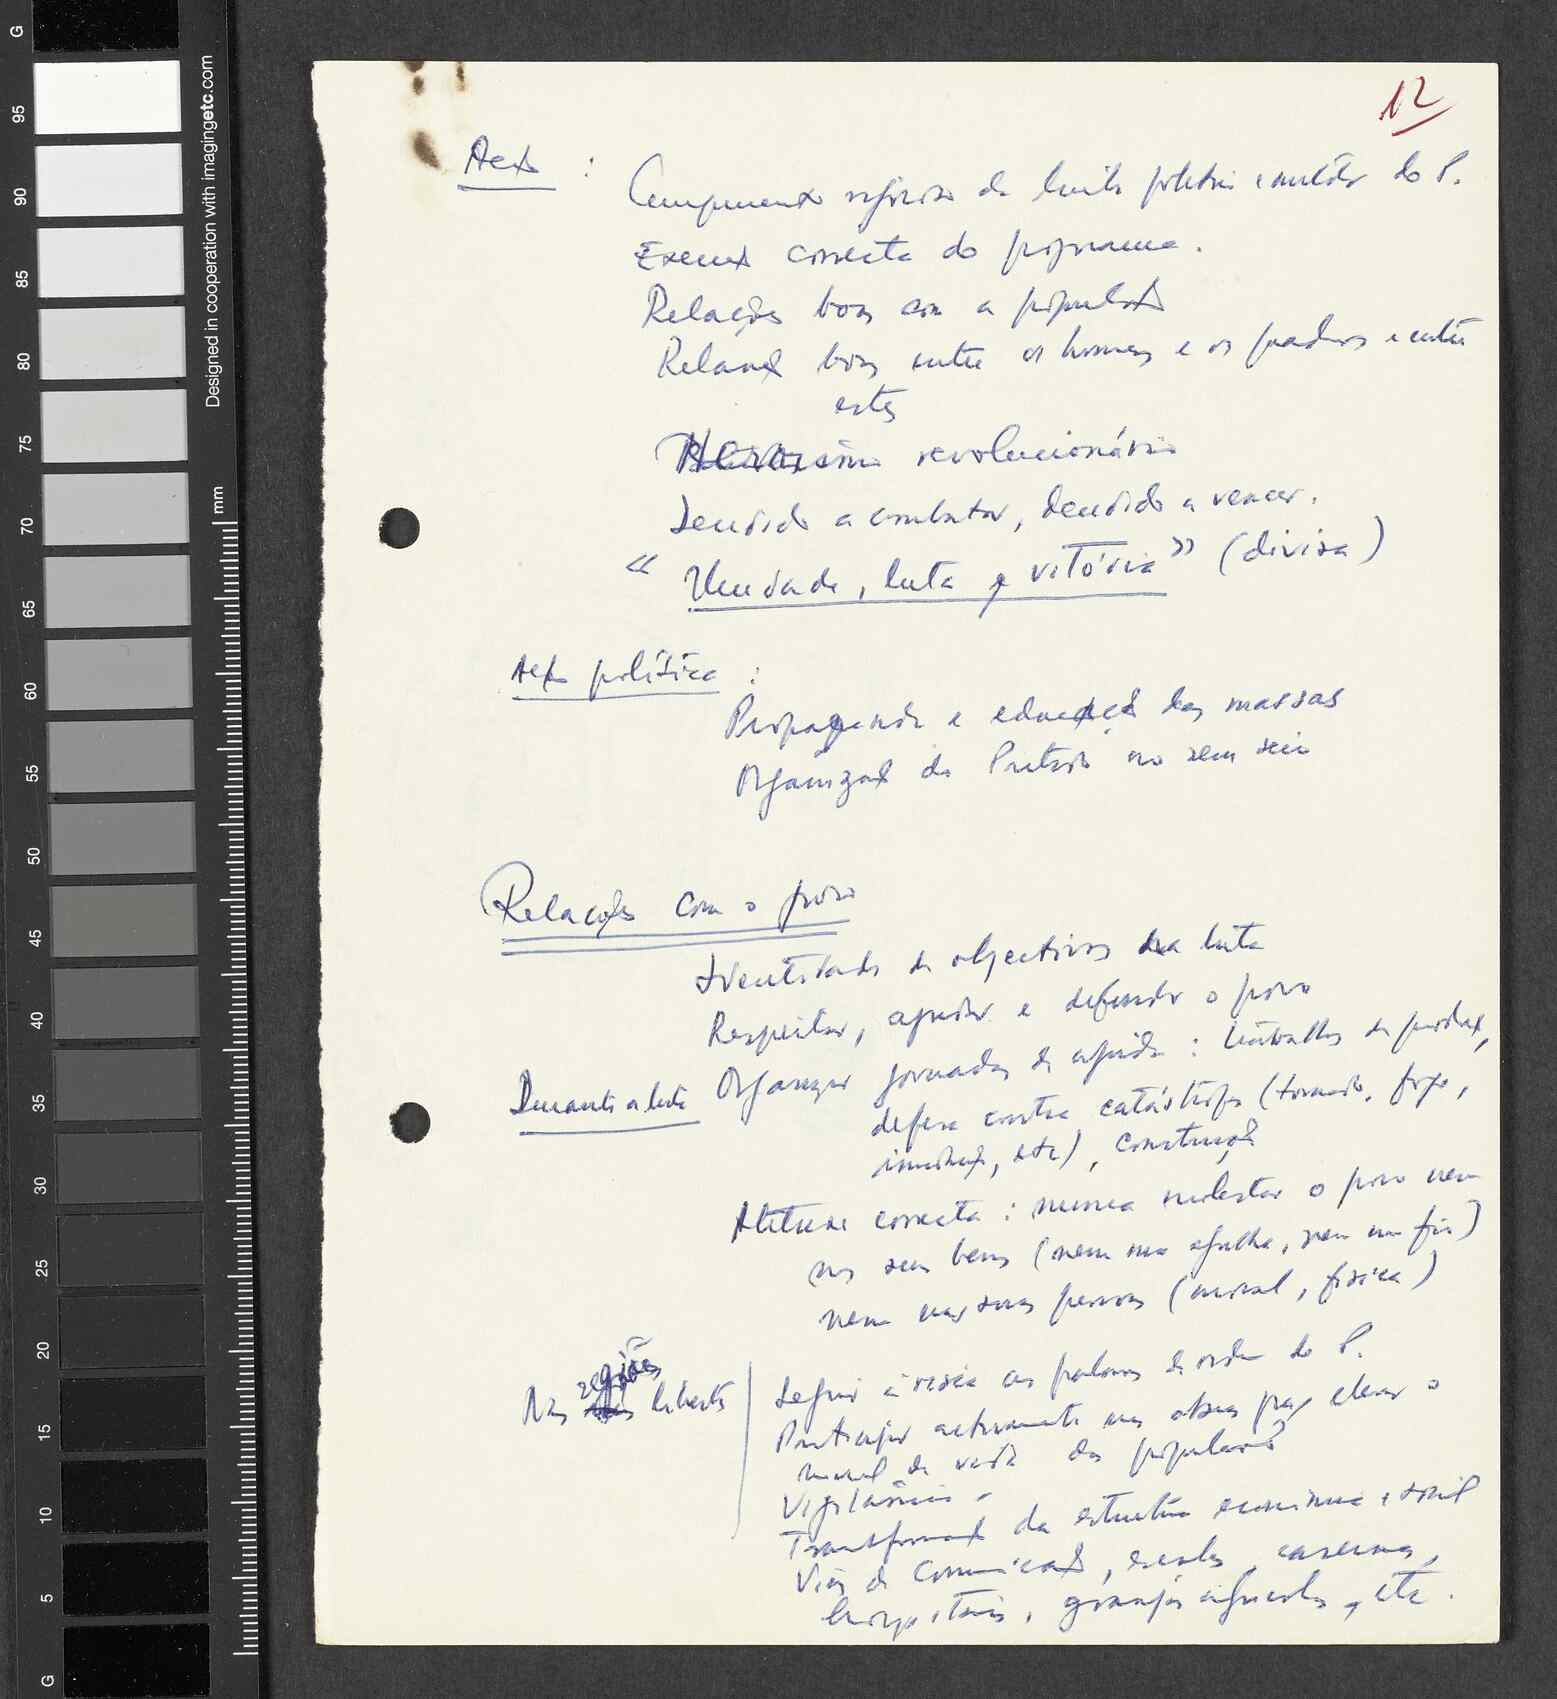 12
Acção :
Cumprimento rigoroso da linha política e militar do P.
Execução correcta do programa.
Relações boas com a população
Relações boas entre os homens e os quadros e entre
estes
Heroísmo revolucionário
Decidido a combater, decidido a vencer.
« Unidade, luta e vitória » (divisa)
Acção política :
Propaganda e educação das massas
Organização do Partido no seu seio
Relações com o povo
Identidade de objectivos da luta
Respeitar, ajudar e defender o povo
Durante a luta Organizar jornadas de ajuda : trabalhos de produção,
defesa contra catástrofes (tornado, fogo,
inundação, etc), construção
Atitude correcta : nunca molestar o povo nem
nos seus bens (nem uma agulha, nem um fio)
nem nas suas pessoas (moral, física)
Nas regiões libertas
Seguir à risca as palavras de ordem do P.
Participar activamente nas obras para elevar o
nível de vida das populações
Vigilância
Transformação da estrutura económica e social
Vias de comunicação, escolas, casernas,
hospitais, granjas agrícolas, etc.
G
95
90
85
80
75
70
65
60
55
50
45
40
35
30
25
20
15
10
5
G
Designed in cooperation with imagingetc.com
mm